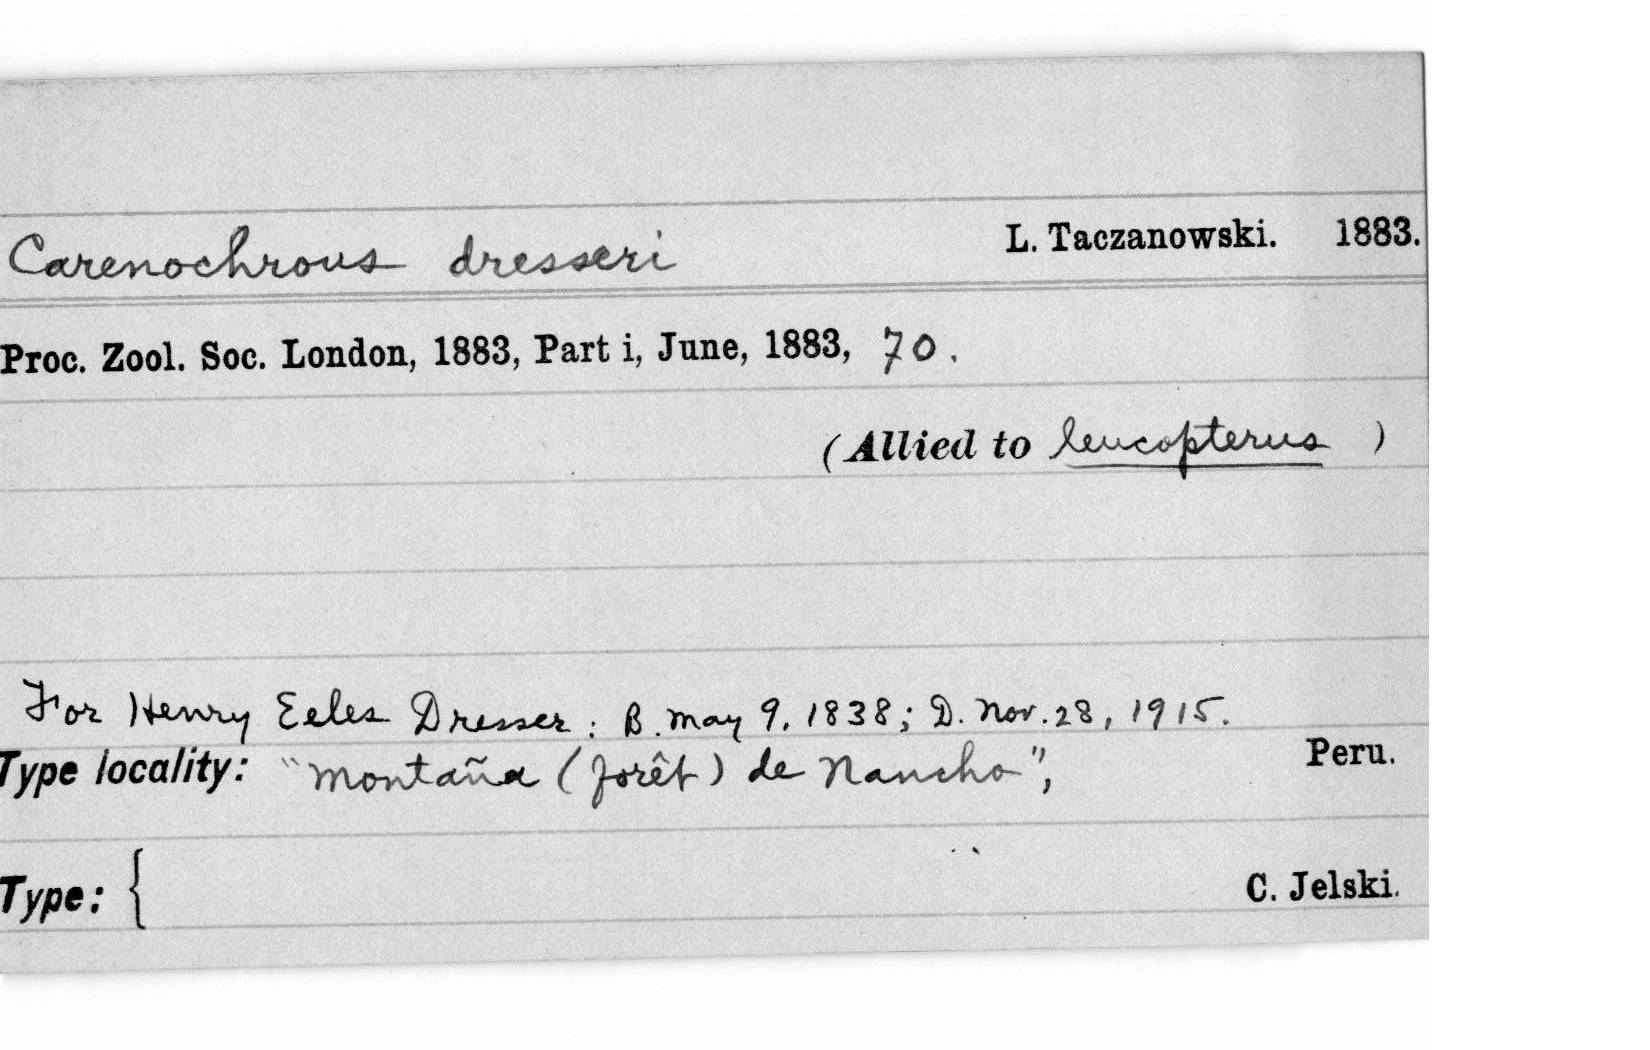 Carenochrous dresseri L. Taczanowski. 1883.
Proc. Zool. Soc. London, 1883, Part i, June, 1883, 70.
(Allied to leucopterus )
For Henry Eeles Dresser: B. May 9, 1838; D. Nov. 28, 1915.
Type locality: "Montaña (forêt) de Nancho", Peru.
Type: { C. Jelski.